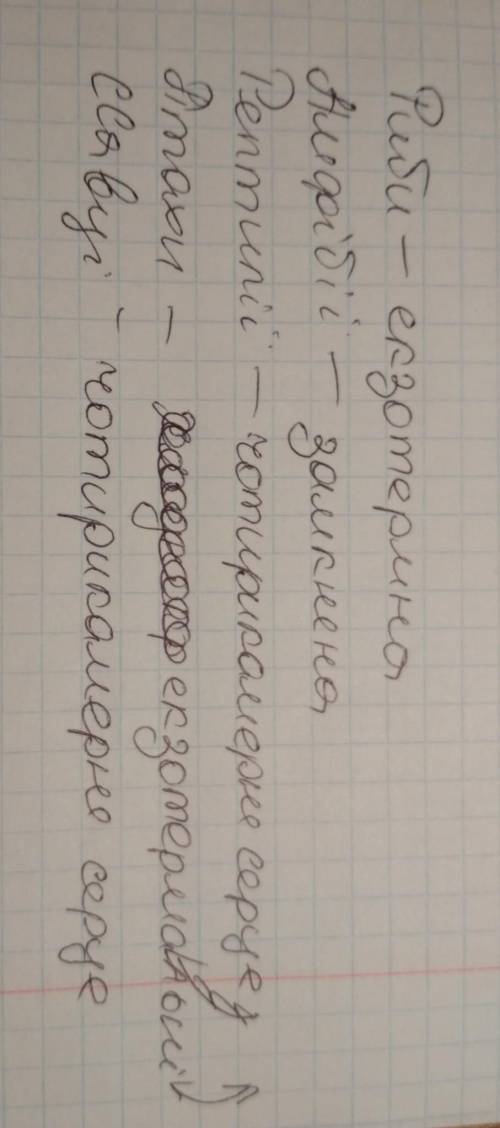 Риби – екзотермна
Амфібії – замкнена
Рептилії – чотирикамерне серце у
Птахи – екзотерм
Ссавці – чотирикамерне серце